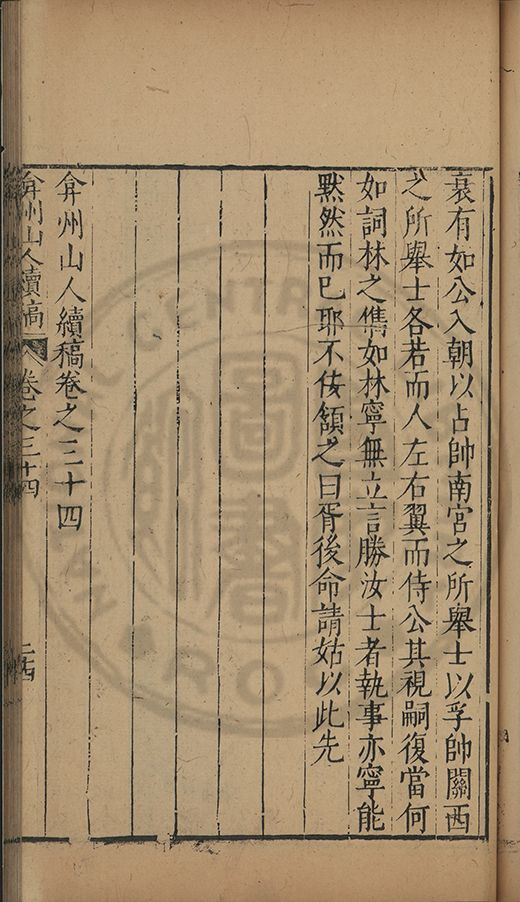 衰有如公入朝以占帥南宮之所舉士以孚帥關西
之所舉士各若而人左右翼而侍公其視嗣復當何
如詞林之雋如林寧無立言勝汝士者執事亦寧能
默然而已耶不佞頷之曰胥後命請姑以此先
弇州山人續稿卷之三十四
弇州山人續稿
卷之三十四
二四